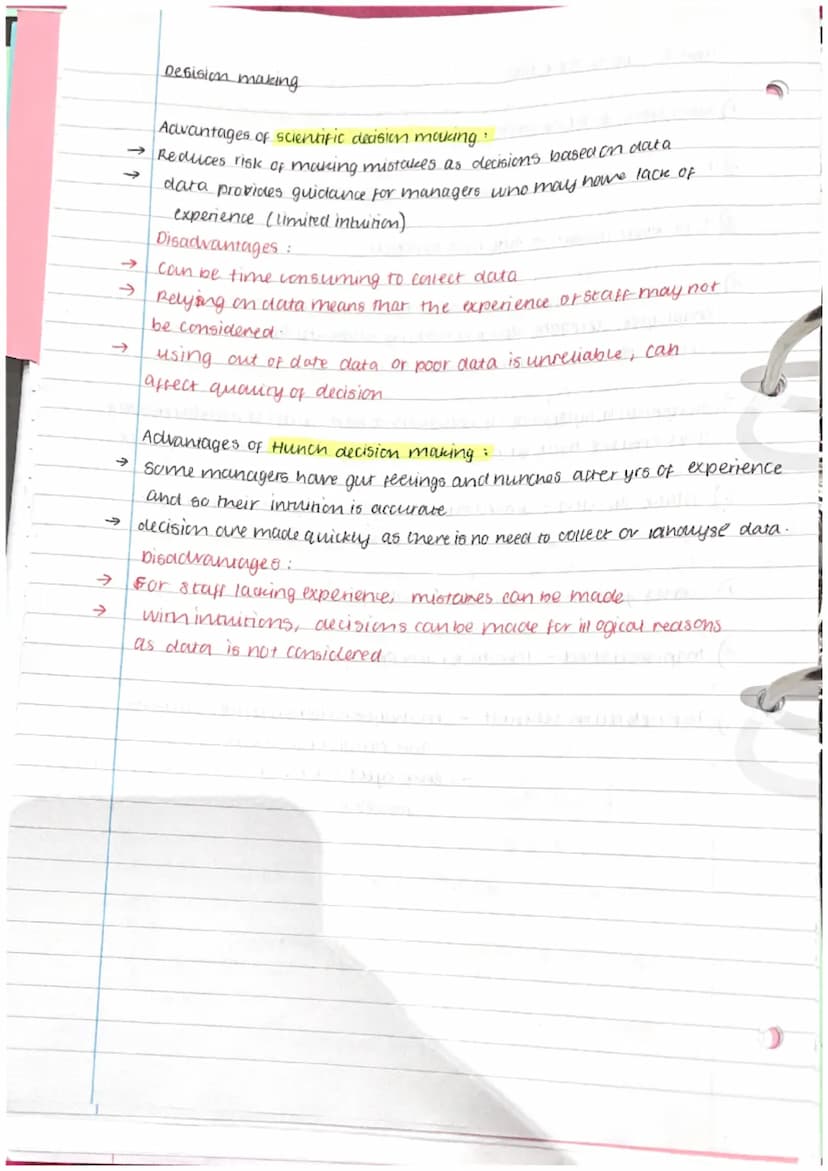 Desision making
Advantages of scientific decision making :
→ Reduces risk of making mistakes as decisions based on data
→ data provides guidance for managers who may have lack of
experience (limited intuition)
Disadvantages :
→ Can be time consuming to collect data
→ Relying on data means that the experience of staff may not
be considered.
→ using out of date data or poor data is unreliable, can
affect quality of decision
Advantages of Hunch decision making :
→ Some managers have gut feelings and hunches after yrs of experience
and so their intuition is accurate
→ decision are made quickly as there is no need to collect or analyse data.
Disadvantages :
→ For staff lacking experience, mistakes can be made
→ with intuitions, decisions can be made for illogical reasons
as data is not considered